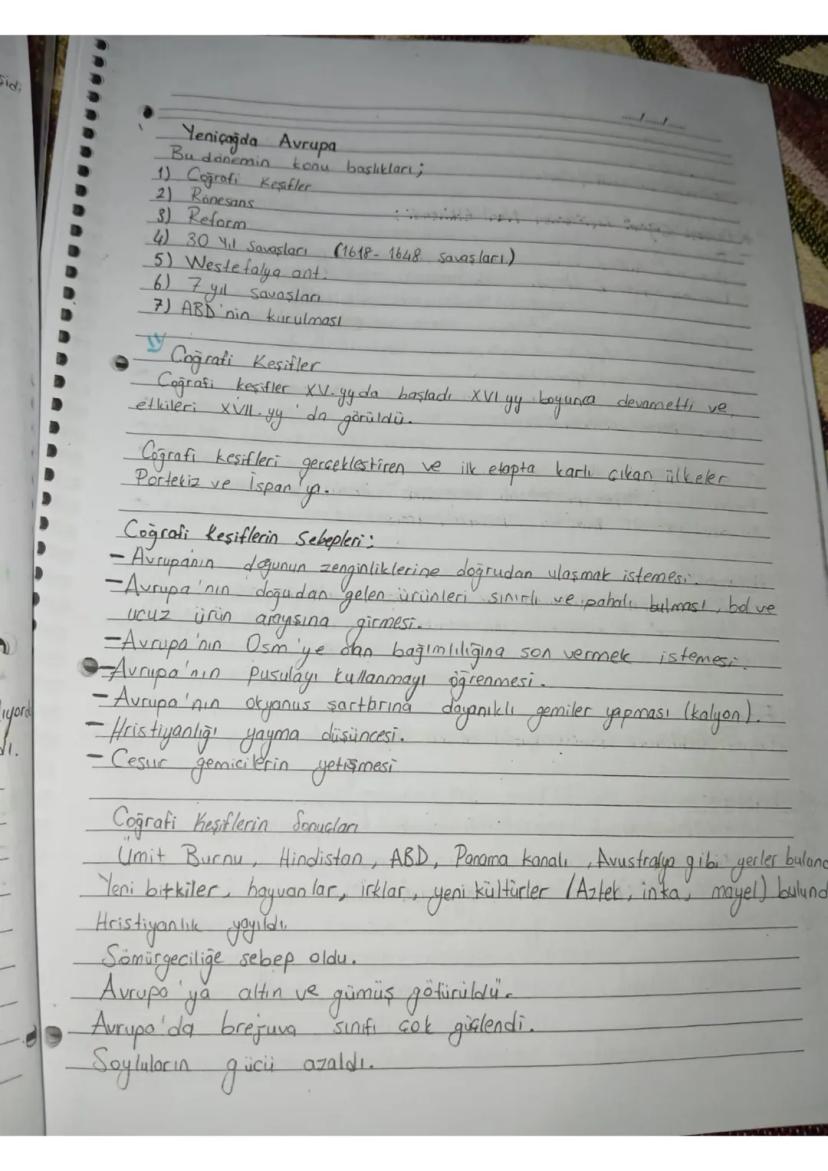 Yeniçağda Avrupa
Bu dönemin konu başlıkları;
1) Coğrafi Keşifler
2) Rönesans
3) Reform
4) 30 Yıl Savaşları (1618-1648 savaşları)
5) Westefalya ant.
6) 7 yıl savaşları
7) ABD'nin kurulması
Coğrafi Keşifler
Coğrafi keşifler XV.yyda başladı XVI yy boyunca devametti ve
etkileri XVII.yy'da görüldü.
Coğrafi keşifleri gerçekleştiren ve ilk etapta karlı çıkan ülkeler
Portekiz ve İspan'ya.
Coğrafi Keşiflerin Sebepleri:
- Avrupanın doğunun zenginliklerine doğrudan ulaşmak istemesi.
- Avrupa'nın doğudan gelen ürünleri sınırlı ve pahalı bulması, bol ve
ucuz ürün arayşına girmesi.
- Avrupa'nın Osm'ye olan bağımlılığına son vermek istemesi.
- Avrupa'nın pusulayı kullanmayı öğrenmesi.
- Avrupa'nın okyanus şartlarına dayanıklı gemiler yapması (kalyon).
- Hristiyanlığı yayma düşüncesi.
- Cesur gemicilerin yetişmesi
Coğrafi Keşiflerin Sonuçları
Ümit Burnu, Hindistan, ABD, Panama kanalı, Avustralya gibi yerler bulund
Yeni bitkiler, hayvanlar, ırklar, yeni kültürler (Aztek, inka, maya) bulund
Hristiyanlık yayıldı.
Sömürgeciliğe sebep oldu.
Avrupa'ya altın ve gümüş götürüldü.
Avrupa'da brejuva sınıfı çok güçlendi.
Soyluların gücü azaldı.